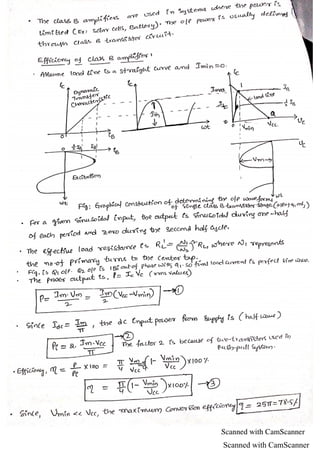 • The class B amplifiers are used in systems where the power is
limited (Ex: solar cells, Battery). The o/p power is usually delivery
through class B transistor circuit.
Efficiency of class B amplifier:
• Assume load line is a straight curve and Imin=0.
ic
Dynamic
Transfer
Characteristic
iB
Im
ωt
ic
Imax
Load line
Vmin
Q
Vcc
Vc
Excitation
ωt
Vm
ωt
Fig: Graphical construction of determining the o/p waveforms
of single class B transistor stage
• For a given sinusoidal input, the output is sinusoidal during one-half
of each period and zero during the second half cycle.
• The effective load resistance is RL' = (N1/N2)² RL, where N1 represents
the no. of primary turns to the center tap.
• Fig. is Q1 o/p. Q2 o/p is 180 out of phase with Q1. so final load current is perfect sine wave.
• The power output is, P = Ic Vc (rms values)
P = Im·Vm/2 = Im/2 (Vcc - Vmin) → ①
• Since Idc = Im/π, the dc input power from supply is (half wave)
Pi = 2· Im·Vcc/π → ② The factor 2 is because of two-transistors used in
push-pull system.
• Efficiency, η = P/Pi × 100 = π/4 Vm/Vcc = π/4 (1 - Vmin/Vcc) × 100%
η = π/4 (1 - Vmin/Vcc) × 100% → ③
• Since, Vmin << Vcc, the maximum conversion efficiency η = 25π = 78.5%
Scanned with CamScanner
Scanned with CamScanner